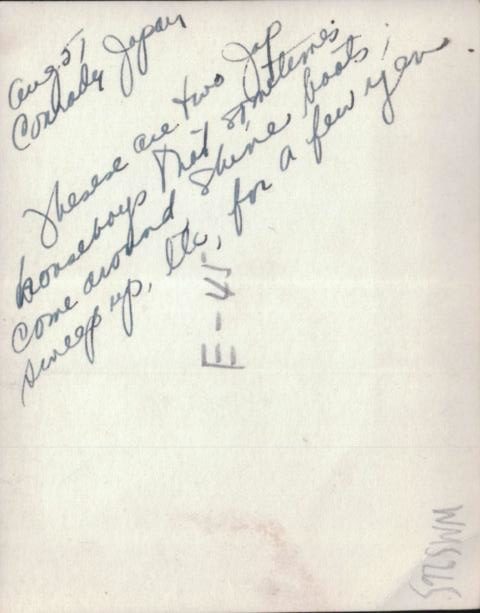 Aug 51
Conrady Japan
Theses are two Jap
houseboys that sometimes
come around shine boots,
sweep up, etc, for a few yen
E-45